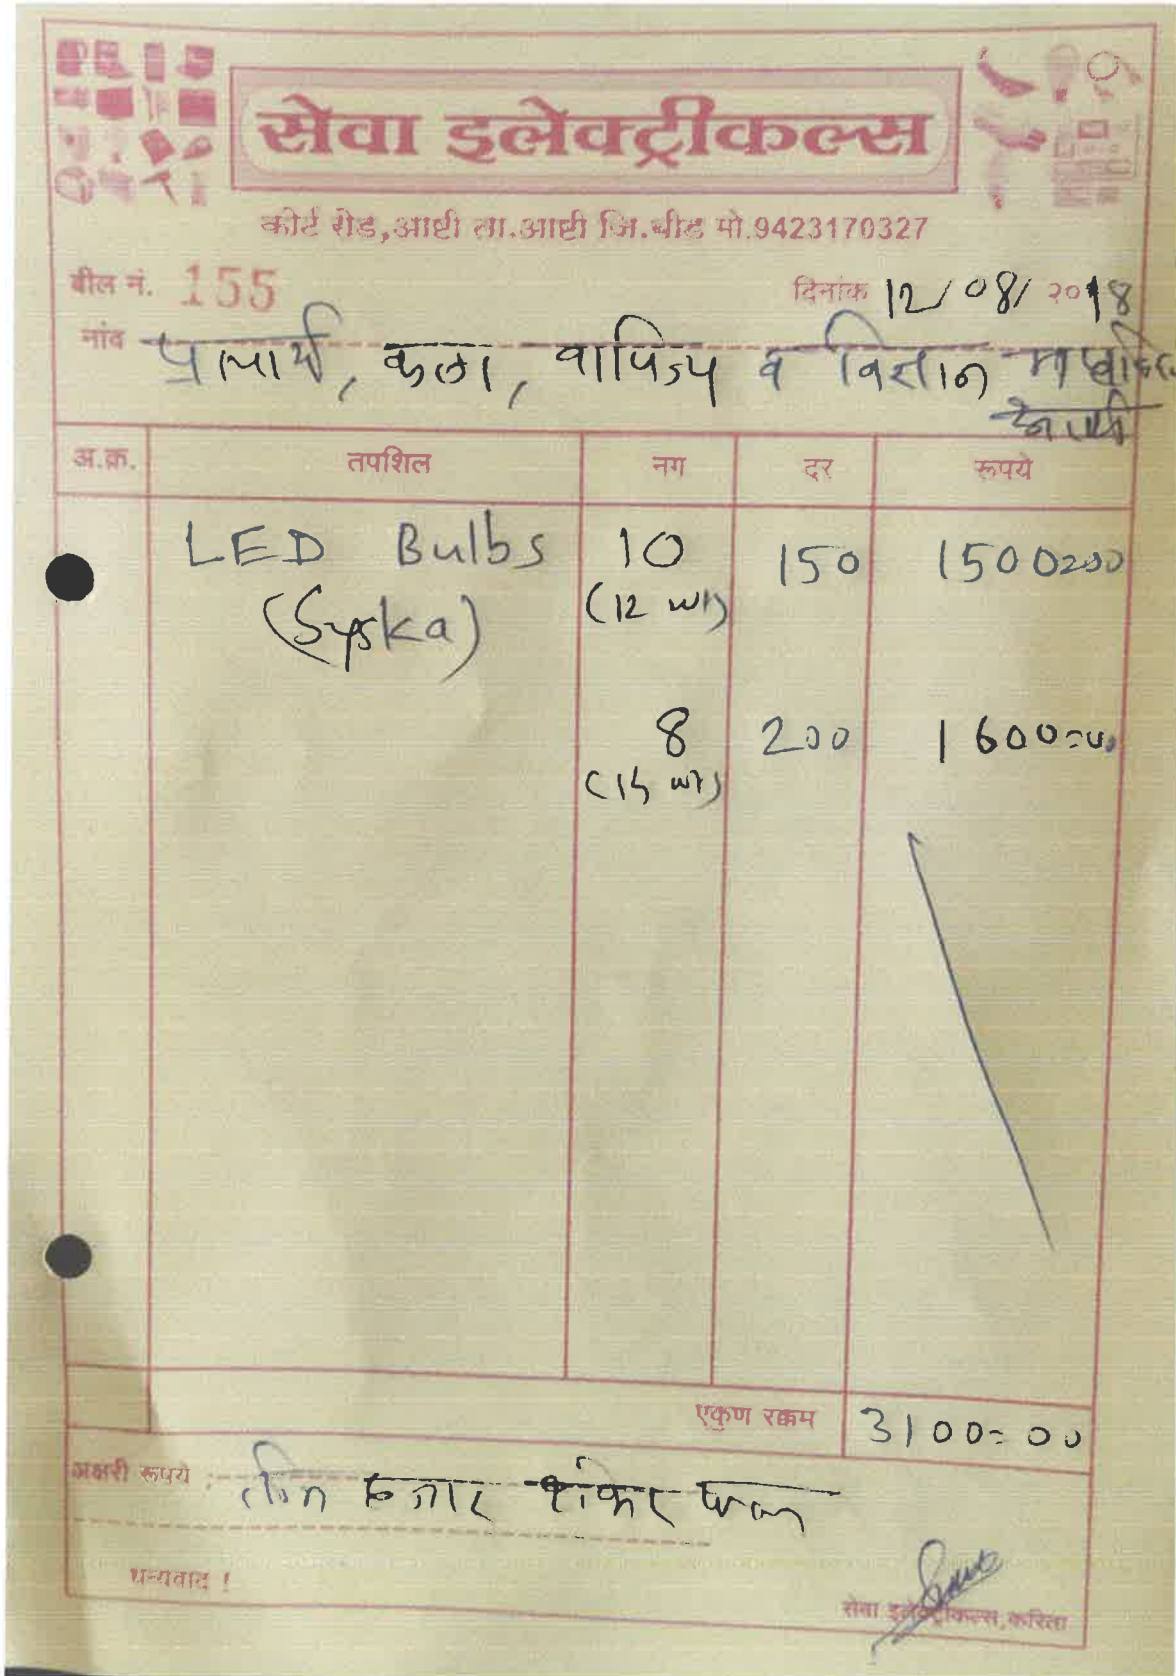 सेवा इलेक्ट्रीकल्स
कोर्ट रोड,आष्टी ता.आष्टी जि.बीड मो.9423170327
बील नं. 155 दिनांक 12/08/२०18
नांव प्राचार्य, कला, वाणिज्य व विज्ञान
अ.क्र. तपशिल नग दर रूपये
LED Bulbs 10 150 1500=00
(Syska) (12 wt)
8 200 1600=00
(15 wt)
एकुण रक्कम 3100=00
अक्षरी रूपये : तीन हजार शंभर
धन्यवाद !
सेवा इलेक्ट्रीकल्स,करिता